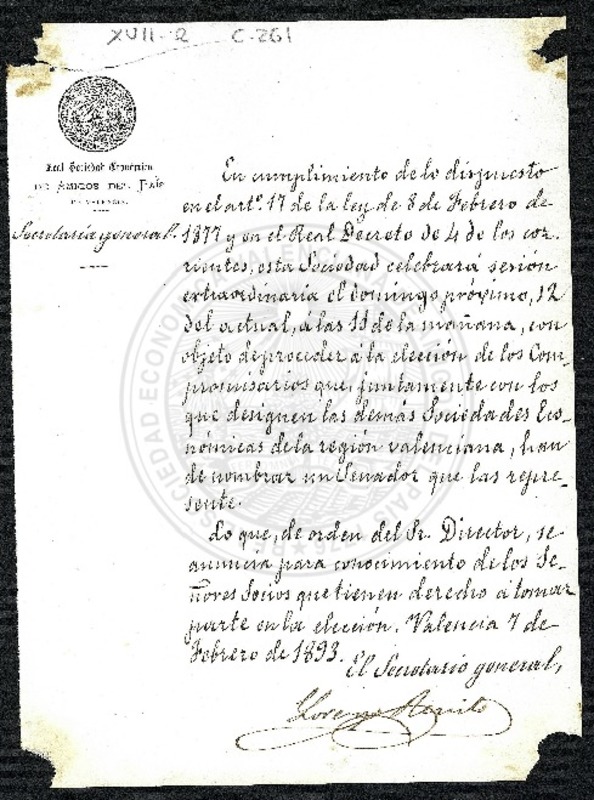 XVII-2 C-261
Real Sociedad Económica
DE AMIGOS DEL PAÍS
DE VALENCIA.
Secretaría general.
En cumplimiento de lo dispuesto
en el artº. 17 de la ley de 8 de Febrero de
1877 y en el Real Decreto de 4 de los cor-
rientes, esta Sociedad celebrará sesión
extraordinaria el domingo próximo, 12
del actual, á las 11 de la mañana, con
objeto de proceder á la elección de los Com-
promisarios que, juntamente con los
que designen las demás Sociedades Eco-
nómicas de la región valenciana, han
de nombrar un Senador que las repre-
sente.
Lo que, de orden del Sr. Director, se
anuncia para conocimiento de los Se-
ñores Socios que tienen derecho á tomar
parte en la elección. Valencia 7 de
Febrero de 1893.
El Secretario general,